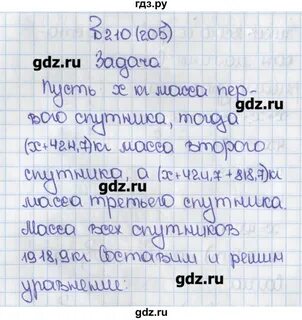 гдз.ру
В 210 (205)
Задача
gdz.ru
gdz.ru
Пусть x кг масса пер-
вого спутника, тогда
(x+424,7) кг масса второго
спутника, а (x+424,7+818,7) кг
gdz.ru
gdz.ru
масса третьего спутника.
Масса всех спутников
1918,9 кг Составим и решим
уравнение:
gdz.ru
gdz.ru